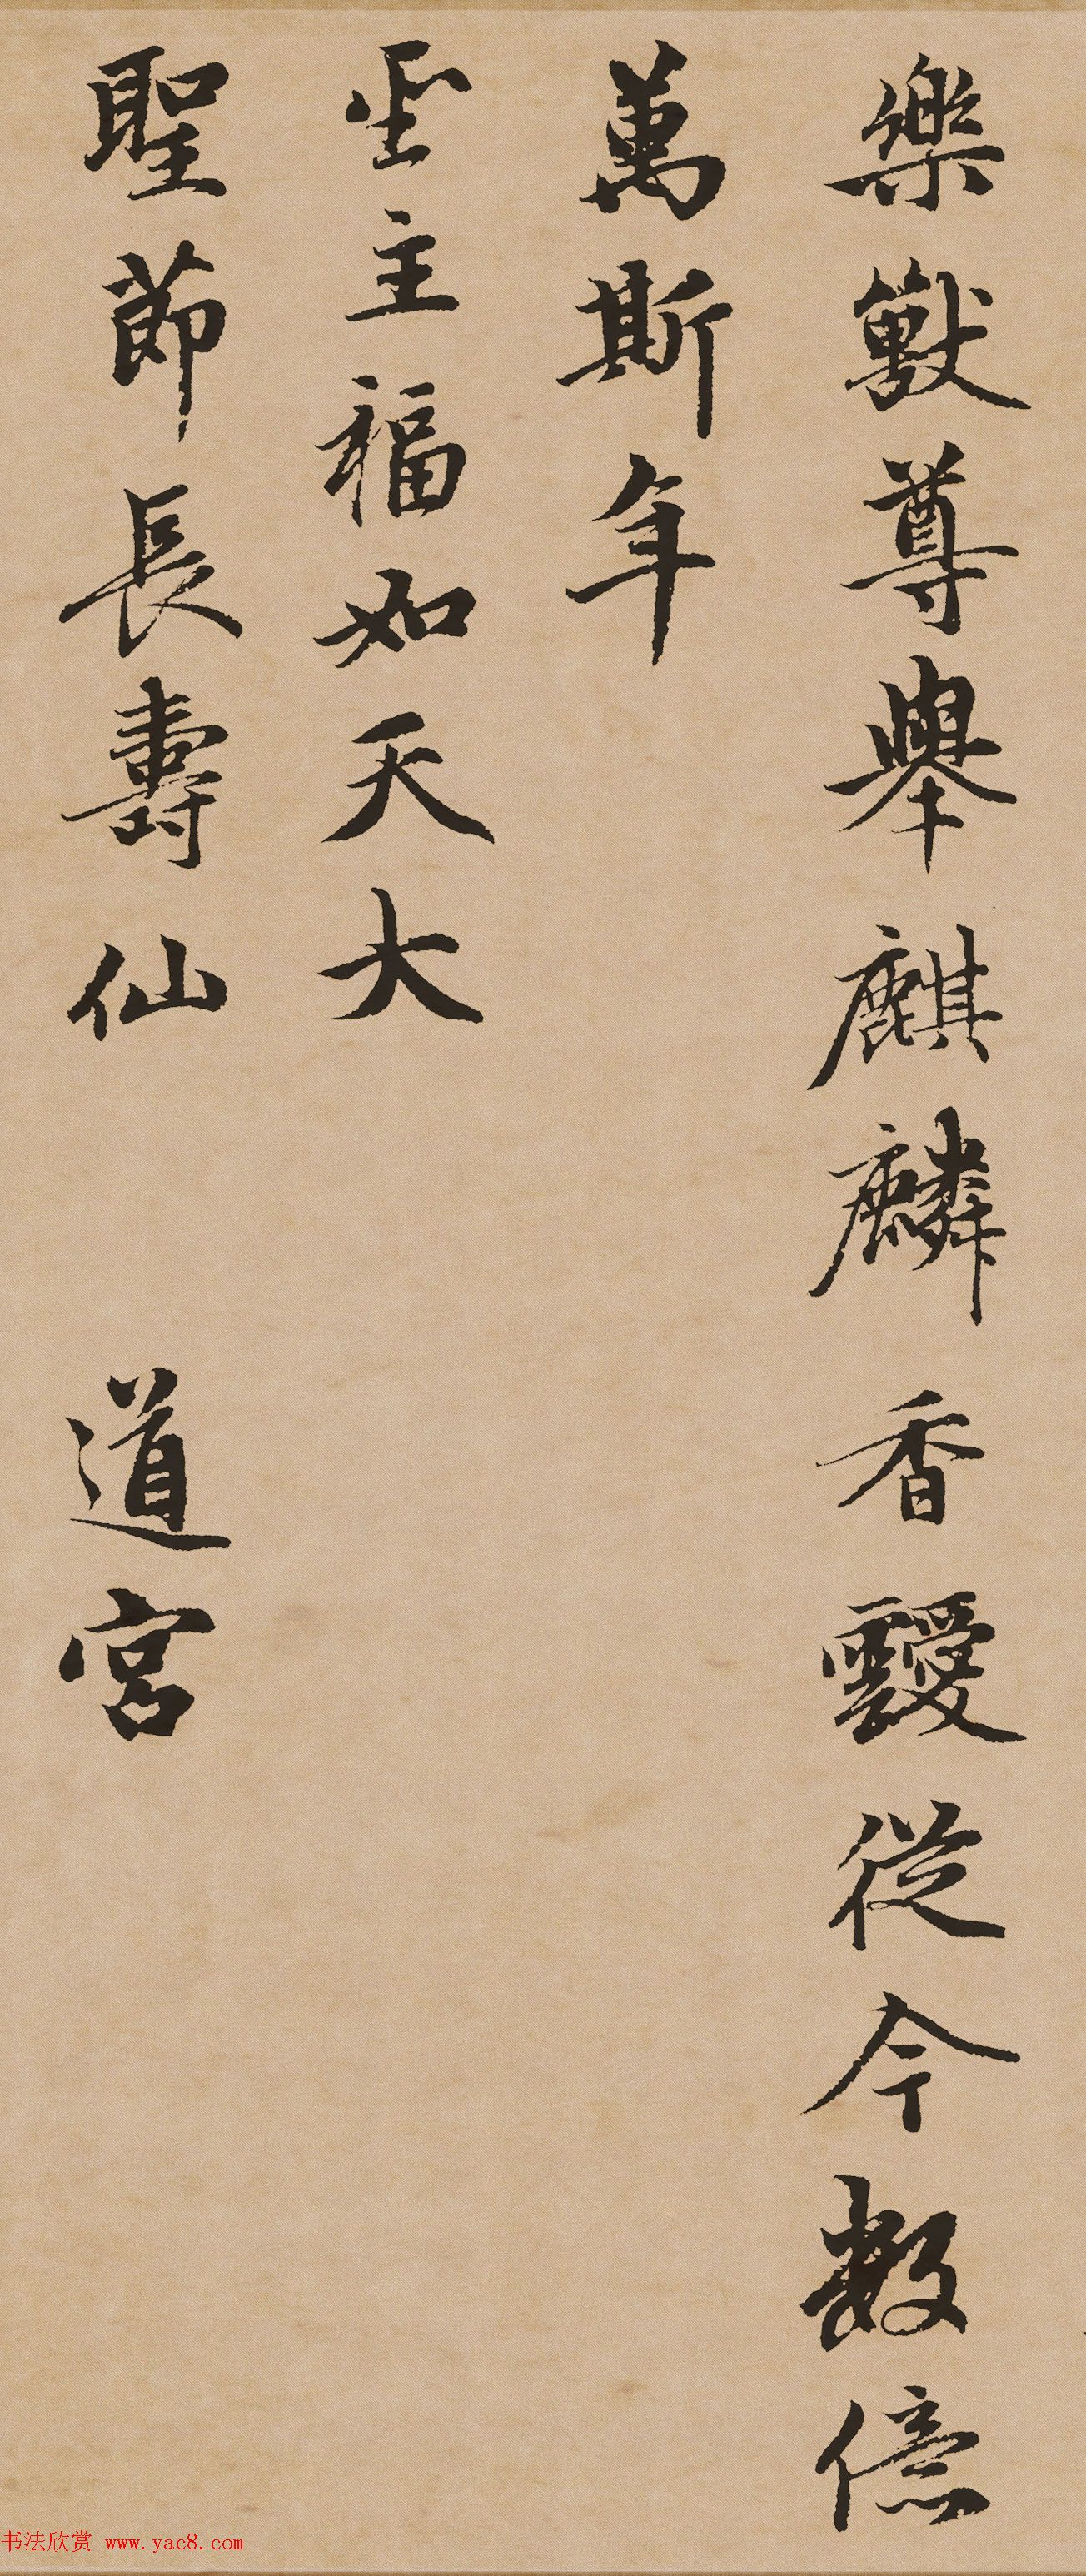 樂獸尊舉麒麟香靉從今數億
萬斯年
主福如天大
聖節長壽仙 道宮
书法欣赏 www.yac8.com